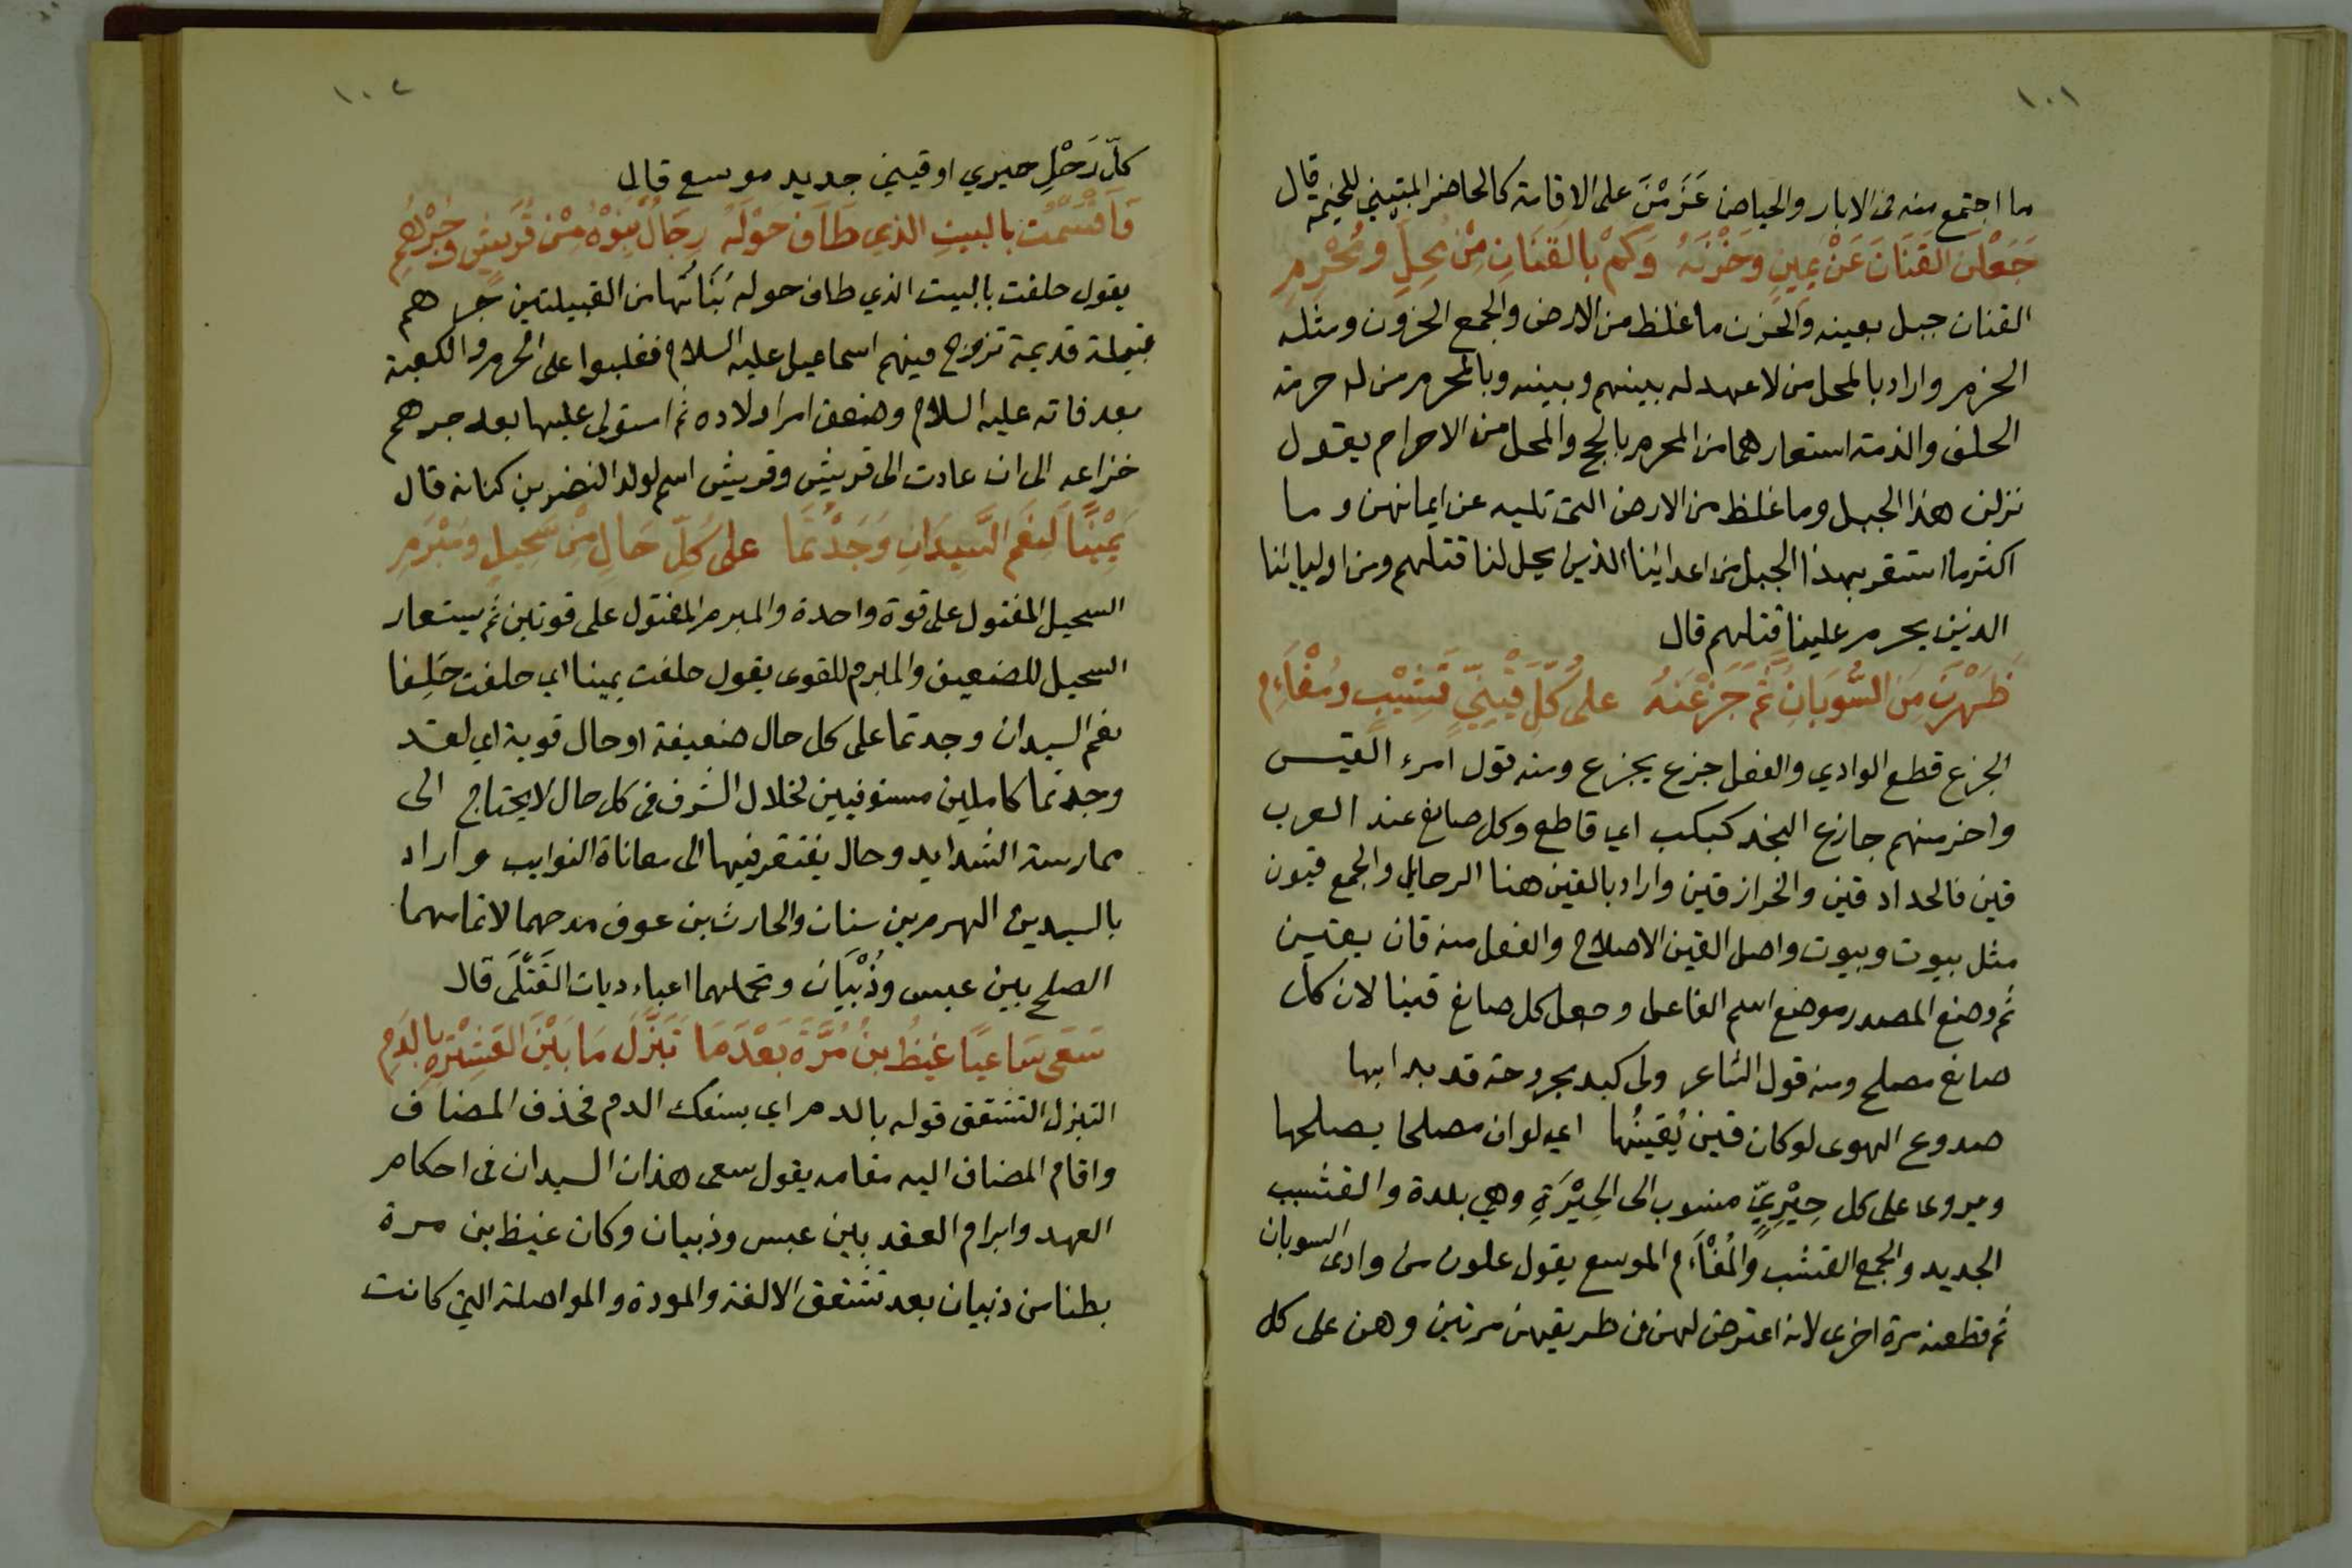 ١٠١
ما اجتمع منه فى الابار والحياض عَزَمْنَ على الاقامة كالحاضر المبتني للخيمه قال
جَعَلْنَ القَنَانَ عَنْ يَمِينٍ وَحَزْنَهُ وَكَمْ بالقَنَانِ مِنْ مُحِلٍّ ومُحْرِمِ
القنان جبل بعينه والحزن ما غلظ من الارض والجمع الحزون ومثله
الحزم واراد بالمحل من لا عهد له بينهم وبينه وبالمحرم من له حرمة
الحلف والذمة استعارهما من المحرم بالحج والمحل من الاحرام يقول
نزلن هذا الجبل وما غلظ من الارض التى تليه عن ايمانهن وما
اكثر ما استقر بهذا الجبل من اعدائنا الذين يحل لنا قتلهم ومن اوليائنا
الذين يحرم علينا قتلهم قال
ظَهَرْنَ مِنَ السُّوبَانِ ثُمَّ جَزَعْنَهُ على كُلِّ قَيْنِيٍّ قَشِيْبٍ ومُفْأَمِ
الجزع قطع الوادي والفعل جزع يجزع ومنه قول امرء القيس
واخر منهم جازع النجد كبكب اي قاطع وكل صانع عند العرب
قين فالحداد قين والخراز قين واراد بالقين هنا الرحايل والجمع قيون
مثل بيوت وبيوت واصل القين الاصلاح والفعل منه قان يقين
ثم وضع المصدر موضع اسم الفاعل وجعل كل صانع قينا لان كل
صانع مصلح ومنه قول الشاعر ولى كبد مجروحة قد بدا بها
صدوع الهوى لو كان قين يُقينُها اي لو ان مصلحا يصلحها
ويروى على كل حِيْرِيٍّ منسوب الى الحِيْرَةِ وهي بلدة والقشيب
الجديد والجمع القشب والمُفْأَم الموسع يقول علون من وادى السوبان
ثم قطعنه مرة اخرى لانه اعترض لهن فى طريقهن مرتين وهن على كل
١٠٢
كلّ رَحْلٍ حيري او قيني جديد موسع قال
فَاَقْسَمْتُ بالبيتِ الذي طَافَ حوْلَهُ رِجَالٌ بَنَوْهُ مِنْ قُرَيشٍ وجُرْهُمِ
يقول حلفت بالبيت الذي طاف حوله بَنَائها من القبيلتين جرهم
قبيلة قديمة تزوج فيهم اسماعيل عليه السلام فغلبوا على الحرم والكعبة
بعد فاته عليه السلام وضعف امر اولاده ثم استولى عليها بعد جرهم
خزاعه الى ان عادت الى قريش وقريش اسم لولد النضر بن كنانه قال
يَمِيْنًا لَنِعْمَ السَّيِدَانِ وَجَدْتُمَا على كلِّ حَالٍ مِنْ سَحِيلٍ ومُبْرَمِ
السحيل المفتول على قوة واحدة والمبرم المفتول على قوتين ثم يستعار
السحيل للضعيف والمبرم للقوى يقول حلفت يمينا اي حلفت حَلِفا
نعم السيدان وجدتما على كل حال ضعيفة او حال قوية اي لقد
وجدتما كاملين مستوفيين لخلال الشرف فى كل حال لا يحتاج الى
ممارسة الشدايد وحال يفتقر فيها الى معاناة النوايب واراد
بالسيدين الهرم بن سنان والحارث بن عوف مدحهما لاتمامهما
الصلح بين عبس وذُبْيَان وتحملهما اعباء ديات القَتْلَى قال
سَعَى سَاعيًا غيظُ بنُ مُرَّةَ بَعْدَمَا تَبَزَّلَ مَا بَيْنَ العَشِيْرَةِ بالدَمِ
التبزل التشقق قوله بالدم اي بسفك الدم فحذف المضاف
واقام المضاف اليه مقامه يقول سعى هذان السيدان فى احكام
العهد وابرام العقد بين عبس وذبيان وكان غيظ بن مرة
بطنا من ذبيان بعد تشقق الالفة والمودة والمواصلة التي كانت